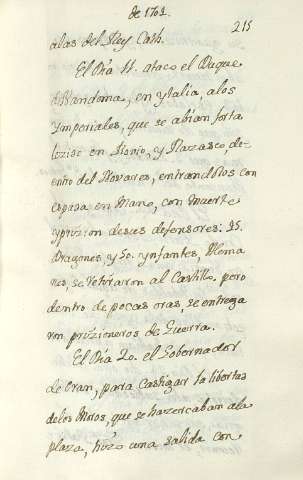 de 1702.
215
alas del Rey Cath.
El Dia 11. ataco el Duque
de Vandoma, en ytalia, alos
ymperiales, que se abian forta
lezido en y Razasco de
entro del Novares, entrandolos con
espada en Mano, con muerte
y prizion desus defensores: 25.
Dragones, y 50. ynfantes, Alema
nes, se retiraron al Castillo, pero
dentro de pocas oras, se entrega
ron prizioneros de Guerra.
El Dia 20. el Gobernador
de Oran, para Castigar la libertad
delos Moros, que se hazercaban ala
plaza, hizo una salida con